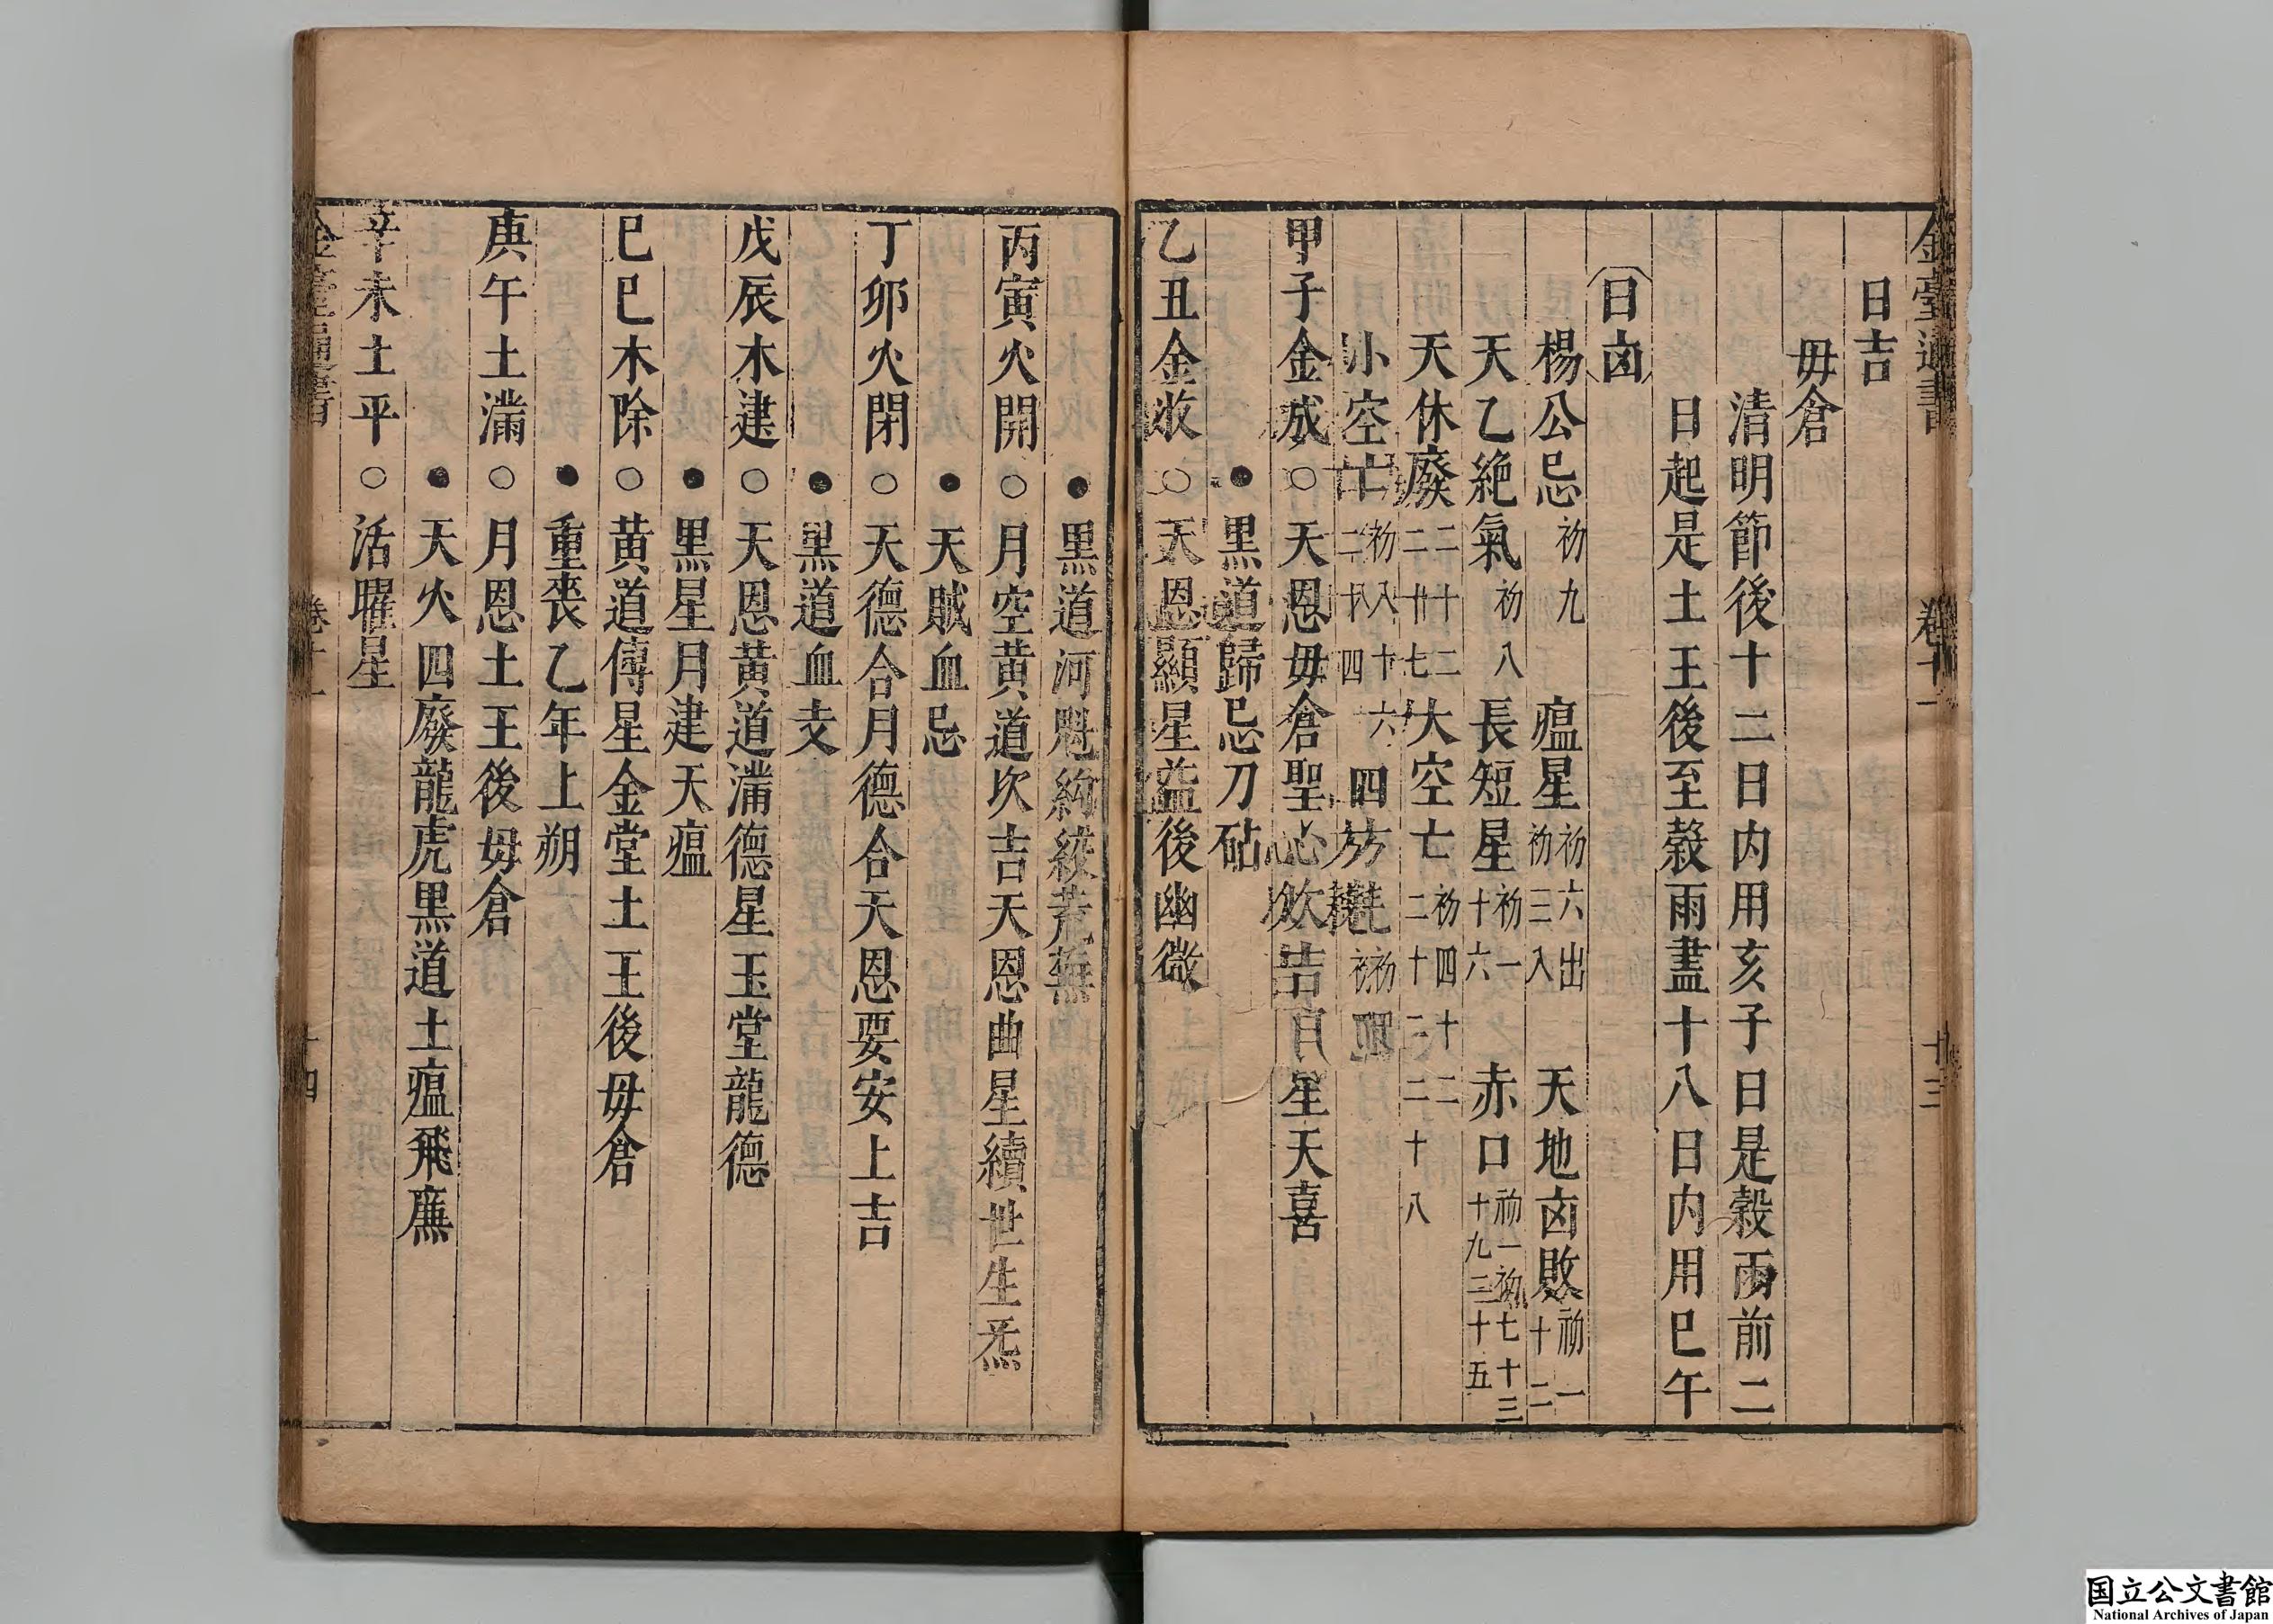 金臺通書 卷十一 十三
日吉
毋倉
清明節後十二日内用亥子日是穀雨前二
日起是土王後至穀雨盡十八日内用巳午
日㐫
楊公忌初九 瘟星初六出初三入 天地㐫敗初一十二
天乙絶氣初八 長短星初一十六 赤口初一初七十三十九二十五
天休廢 大空亡初四十二二十二十八
小空亡 四方耗
甲子金成○天恩毋倉聖心吉星天喜
●黒道歸忌刀砧
乙丑金收○天恩顯星益後幽微
●黒道河魁絢絞荒蕪
丙寅火開○月空黄道次吉天恩曲星續世生炁
●天賊血忌
丁卯火閉○天德合月德合天恩要安上吉
●黒道血支
戊辰木建○天恩黄道滿德星玉堂龍德
●黒星月建天瘟
己巳木除○黄道傳星金堂土王後毋倉
●重喪乙年上朔
庚午土滿○月恩土王後毋倉
●天火四廢龍虎黒道土瘟飛廉
辛未土平○活曜星